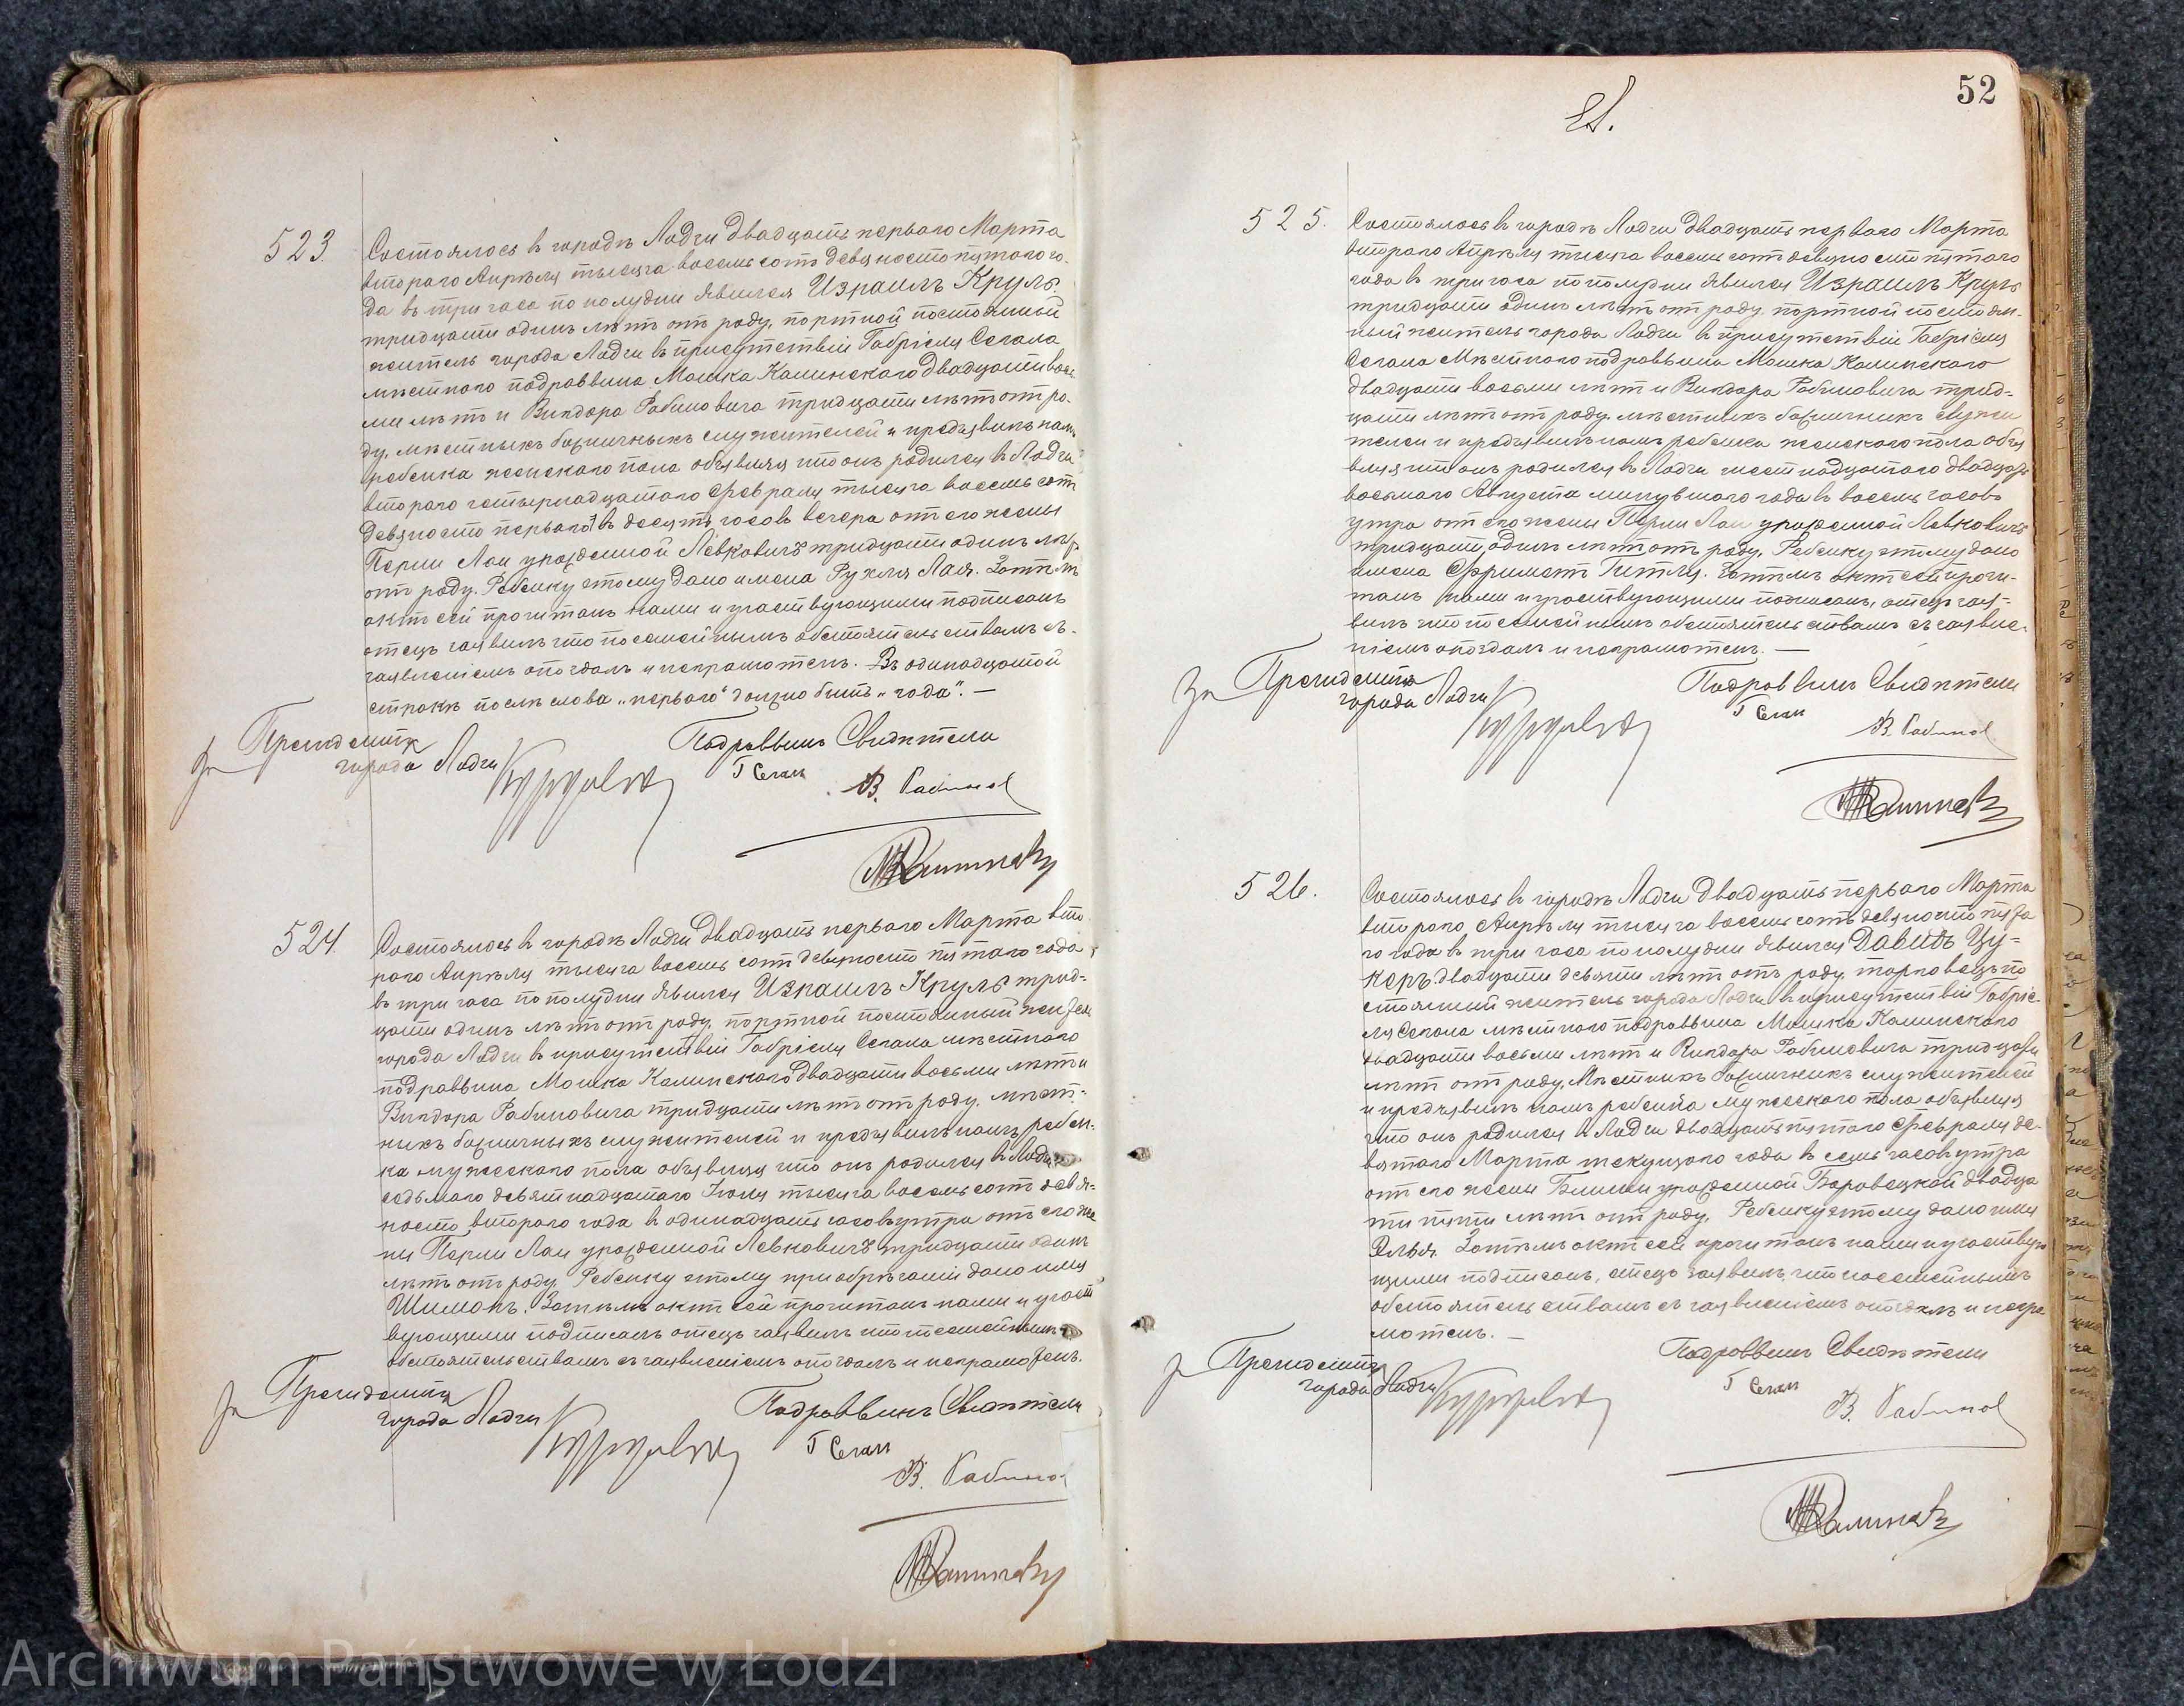 523.
Состоялось въ городѣ Лодзи двадцать перваго Марта
втораго Апрѣля тысяча восемь сотъ девяносто пятаго го-
да въ три часа по полудни явился Израиль Круль
тридцати одинъ лѣтъ отъ роду, портной постоянный
житель города Лодзи въ присутствіи Габріеля Сегала
мѣстнаго подраввина Мошка Калинскаго двадцати вось-
ми лѣтъ и Виндора Рабиновича тридцати лѣтъ отъ ро-
ду, мѣстныхъ божничныхъ служителей и предъявилъ намъ
ребенка женскаго пола объявляя что онъ родился въ Лодзи
втораго четырнадцатаго Февраля тысяча восемь сотъ
девяносто перваго въ десять часовъ вечера отъ его жены
Перли Лаи урожденной Левковичъ тридцати одинъ лѣтъ
отъ роду. Ребенку этому дано имена Рухля Лая. Затѣмъ
актъ сей прочитанъ нами и участвующими подписанъ
отецъ заявилъ что по семейнымъ обстоятельствамъ съ
заявленіемъ опоздалъ и неграмотенъ. Въ одинадцатой
строкѣ послѣ слова „перваго" должно быть „года". —
За Президента
города Лодзи
Подраввинъ Свидѣтели
Г Сегал
В. Рабинов
524.
Состоялось въ городѣ Лодзи двадцать перваго Марта вто-
раго Апрѣля тысяча восемь сотъ девяносто пятаго года
въ три часа по полудни явился Израиль Круль трид-
цати одинъ лѣтъ отъ роду, портной постоянный житель
города Лодзи въ присутствіи Габріеля Сегала мѣстнаго
подраввина Мошка Калинскаго двадцати восьми лѣтъ и
Виндора Рабиновича тридцати лѣтъ отъ роду, мѣст-
ныхъ божничныхъ служителей и предъявилъ намъ ребен-
ка мужескаго пола объявляя что онъ родился въ Лодзи
седьмаго девятнадцатаго Іюня тысяча восемь сотъ девя-
носто втораго года въ одинадцать часовъ утра отъ его же-
ны Перли Лаи урожденной Левковичъ тридцати одинъ
лѣтъ отъ роду. Ребенку этому при обрѣзаніи дано имя
Шимонъ. Затѣмъ актъ сей прочитанъ нами и участ
вующими подписанъ отецъ заявилъ что по семейнымъ
обстоятельствамъ съ заявленіемъ опоздалъ и неграмотенъ.
За Президента
города Лодзи
Подраввинъ Свидѣтели
Г Сегал
В. Рабинов
52
525.
Состоялось въ городѣ Лодзи двадцать перваго Марта
втораго Апрѣля тысяча восемь сотъ девяносто пятаго
года въ три часа по полудни явился Израиль Круль
тридцати одинъ лѣтъ отъ роду, портной постоян-
ный житель города Лодзи въ присутствіи Габріеля
Сегала мѣстнаго подраввина Мошка Калинскаго
двадцати восьми лѣтъ и Виндора Рабиновича трид-
цати лѣтъ отъ роду, мѣстныхъ божничныхъ служи
телей и предъявилъ намъ ребенка женскаго пола объя
вляя что онъ родился въ Лодзи шестнадцатаго двадцать
восьмаго Августа минувшаго года въ восемь часовъ
утра отъ его жены Перли Лаи урожденной Левковичъ
тридцати одинъ лѣтъ отъ роду. Ребенку этому дано
имена Фриметъ Гитля. Затѣмъ актъ сей прочи-
танъ нами и участвующими подписанъ, отецъ зая-
вилъ что по семейнымъ обстоятельствамъ съ заявле-
ніемъ опоздалъ и неграмотенъ. —
За Президента
города Лодзи
Подраввинъ Свидѣтели
Г Сегал
В. Рабинов
526.
Состоялось въ городѣ Лодзи двадцать перваго Марта
втораго Апрѣля тысяча восемь сотъ девяносто пята
го года въ три часа по полудни явился Давидъ Цу-
керъ двадцати девяти лѣтъ отъ роду, торговецъ по
стоянный житель города Лодзи въ присутствіи Габріе-
ля Сегала мѣстнаго подраввина Мошка Калинскаго
двадцати восьми лѣтъ и Виндора Рабиновича тридцати
лѣтъ отъ роду, мѣстныхъ божничныхъ служителей
и предъявилъ намъ ребенка мужескаго пола объявляя
что онъ родился въ Лодзи двадцать пятаго Февраля де-
вятаго Марта текущаго года въ семь часовъ утра
отъ его жены Блимы урожденной Боровецкой двадца
ти пяти лѣтъ отъ роду. Ребенку этому дано имя
Элья. Затѣмъ актъ сей прочитанъ нами и участвую
щими подписанъ, отецъ заявилъ, что по семейнымъ
обстоятельствамъ съ заявленіемъ опоздалъ и негра
мотенъ. —
За Президента
города Лодзи
Подраввинъ Свидѣтели
Г Сегал
В. Рабинов
Archiwum Państwowe w Łodzi